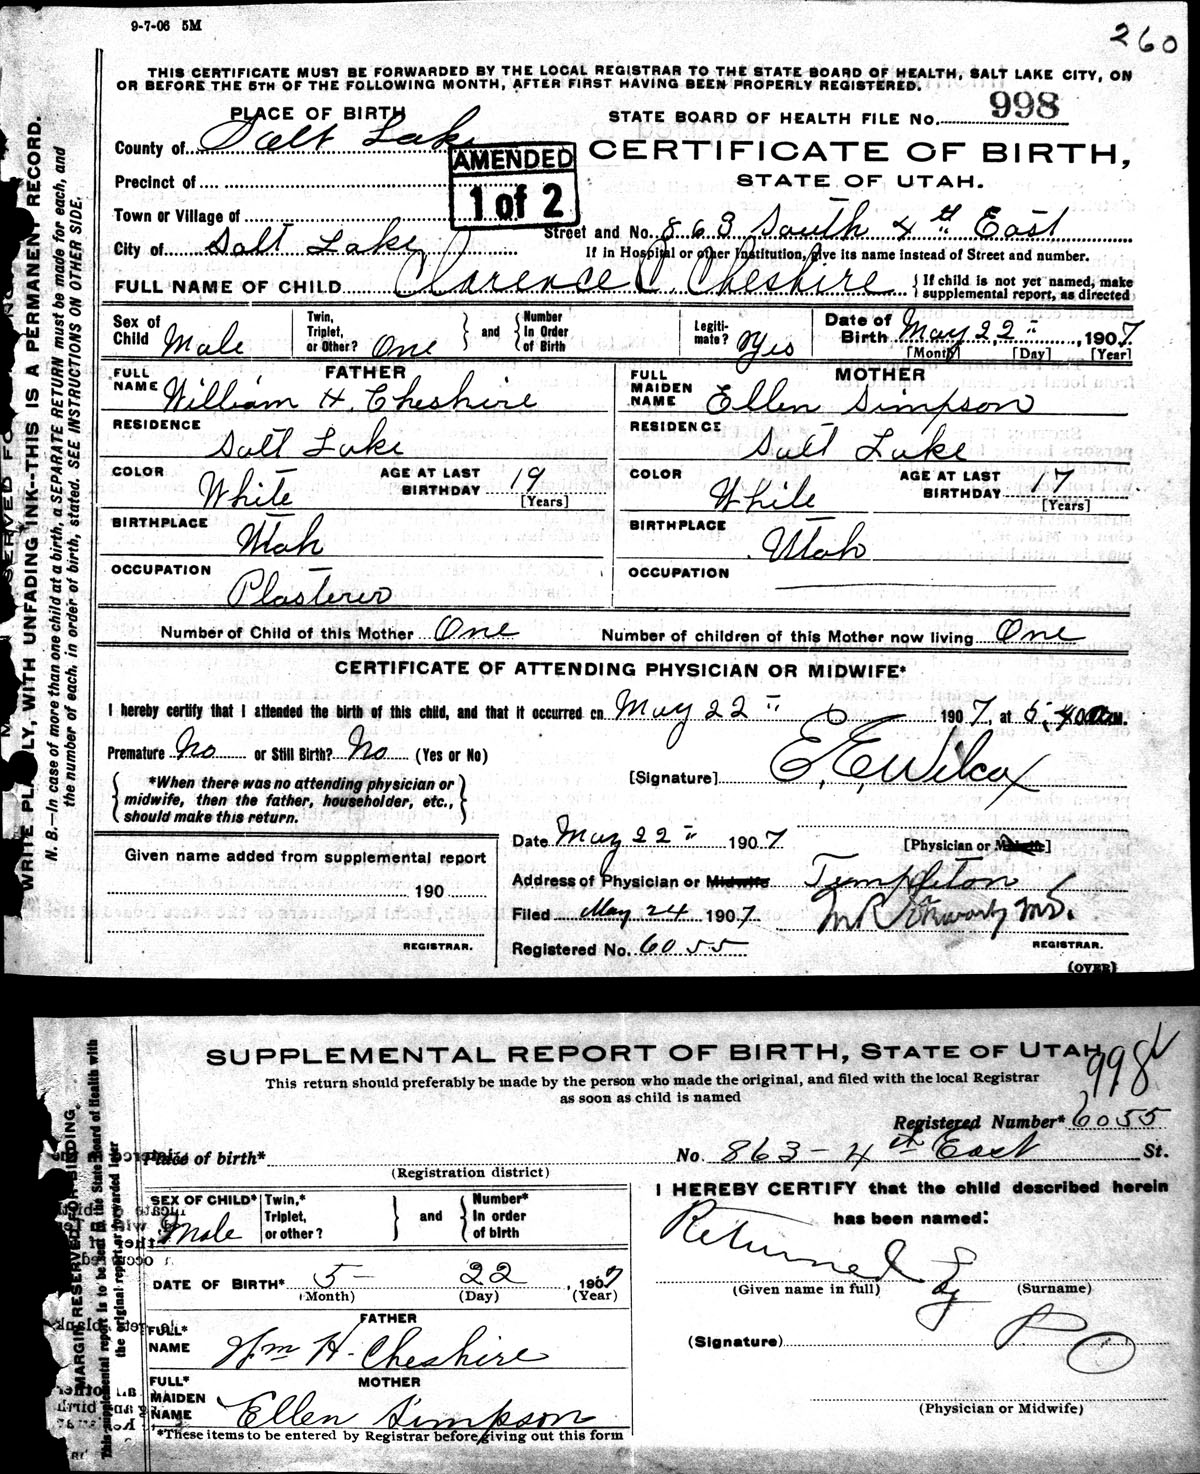 9-7-06 5M
260
THIS CERTIFICATE MUST BE FORWARDED BY THE LOCAL REGISTRAR TO THE STATE BOARD OF HEALTH, SALT LAKE CITY, ON
OR BEFORE THE 5TH OF THE FOLLOWING MONTH, AFTER FIRST HAVING BEEN PROPERLY REGISTERED.
PLACE OF BIRTH
STATE BOARD OF HEALTH FILE No. 998
County of Salt Lake
AMENDED
1 of 2
CERTIFICATE OF BIRTH,
STATE OF UTAH.
Precinct of
Town or Village of
Street and No. 863 South 4th East
City of Salt Lake
If in Hospital or other Institution, give its name instead of Street and number.
FULL NAME OF CHILD Clarence C. Cheshire
{If child is not yet named, make
supplemental report, as directed
Sex of Child Male
Twin, Triplet, or Other? One } and { Number In Order of Birth
Legitimate? Yes
Date of Birth May 22", 1907
[Month] [Day] [Year]
FATHER
FULL NAME William H. Cheshire
MOTHER
FULL MAIDEN NAME Ellen Simpson
RESIDENCE Salt Lake
RESIDENCE Salt Lake
COLOR White AGE AT LAST BIRTHDAY 19 [Years]
COLOR White AGE AT LAST BIRTHDAY 17 [Years]
BIRTHPLACE Utah
BIRTHPLACE Utah
OCCUPATION Plasterer
OCCUPATION
Number of Child of this Mother One Number of children of this Mother now living One
CERTIFICATE OF ATTENDING PHYSICIAN OR MIDWIFE*
I hereby certify that I attended the birth of this child, and that it occurred on May 22" 1907, at 5:40 M.
Premature No or Still Birth? No (Yes or No)
[Signature] E. E. Wilcox
{*When there was no attending physician or
midwife, then the father, householder, etc.,
should make this return.}
Date May 22" 1907
[Physician or Midwife]
Given name added from supplemental report
190
REGISTRAR.
Address of Physician or Midwife Templeton
Filed May 24 1907
Registered No. 6055
REGISTRAR.
(OVER)
WRITE PLAINLY, WITH UNFADING INK--THIS IS A PERMANENT RECORD.
N. B.—In case of more than one child at a birth, a SEPARATE RETURN must be made for each, and
the number of each, in order of birth, stated. SEE INSTRUCTIONS ON OTHER SIDE.
SUPPLEMENTAL REPORT OF BIRTH, STATE OF UTAH
998
This return should preferably be made by the person who made the original, and filed with the local Registrar
as soon as child is named
Registered Number* 6055
Place of birth* No. 863 - 4th East St.
(Registration district)
SEX OF CHILD* Male
Twin,* Triplet, or other? } and { Number* In order of birth
I HEREBY CERTIFY that the child described herein
has been named:
Returned
(Given name in full) (Surname)
DATE OF BIRTH* 5- 22, 1907
(Month) (Day) (Year)
FATHER
FULL* NAME Wm H. Cheshire
(Signature)
MOTHER
FULL* MAIDEN NAME Ellen Simpson
(Physician or Midwife)
*These items to be entered by Registrar before giving out this form
MARGIN RESERVED FOR BINDING.
This supplemental report is to be sent to the State Board of Health with
the original report or forwarded later